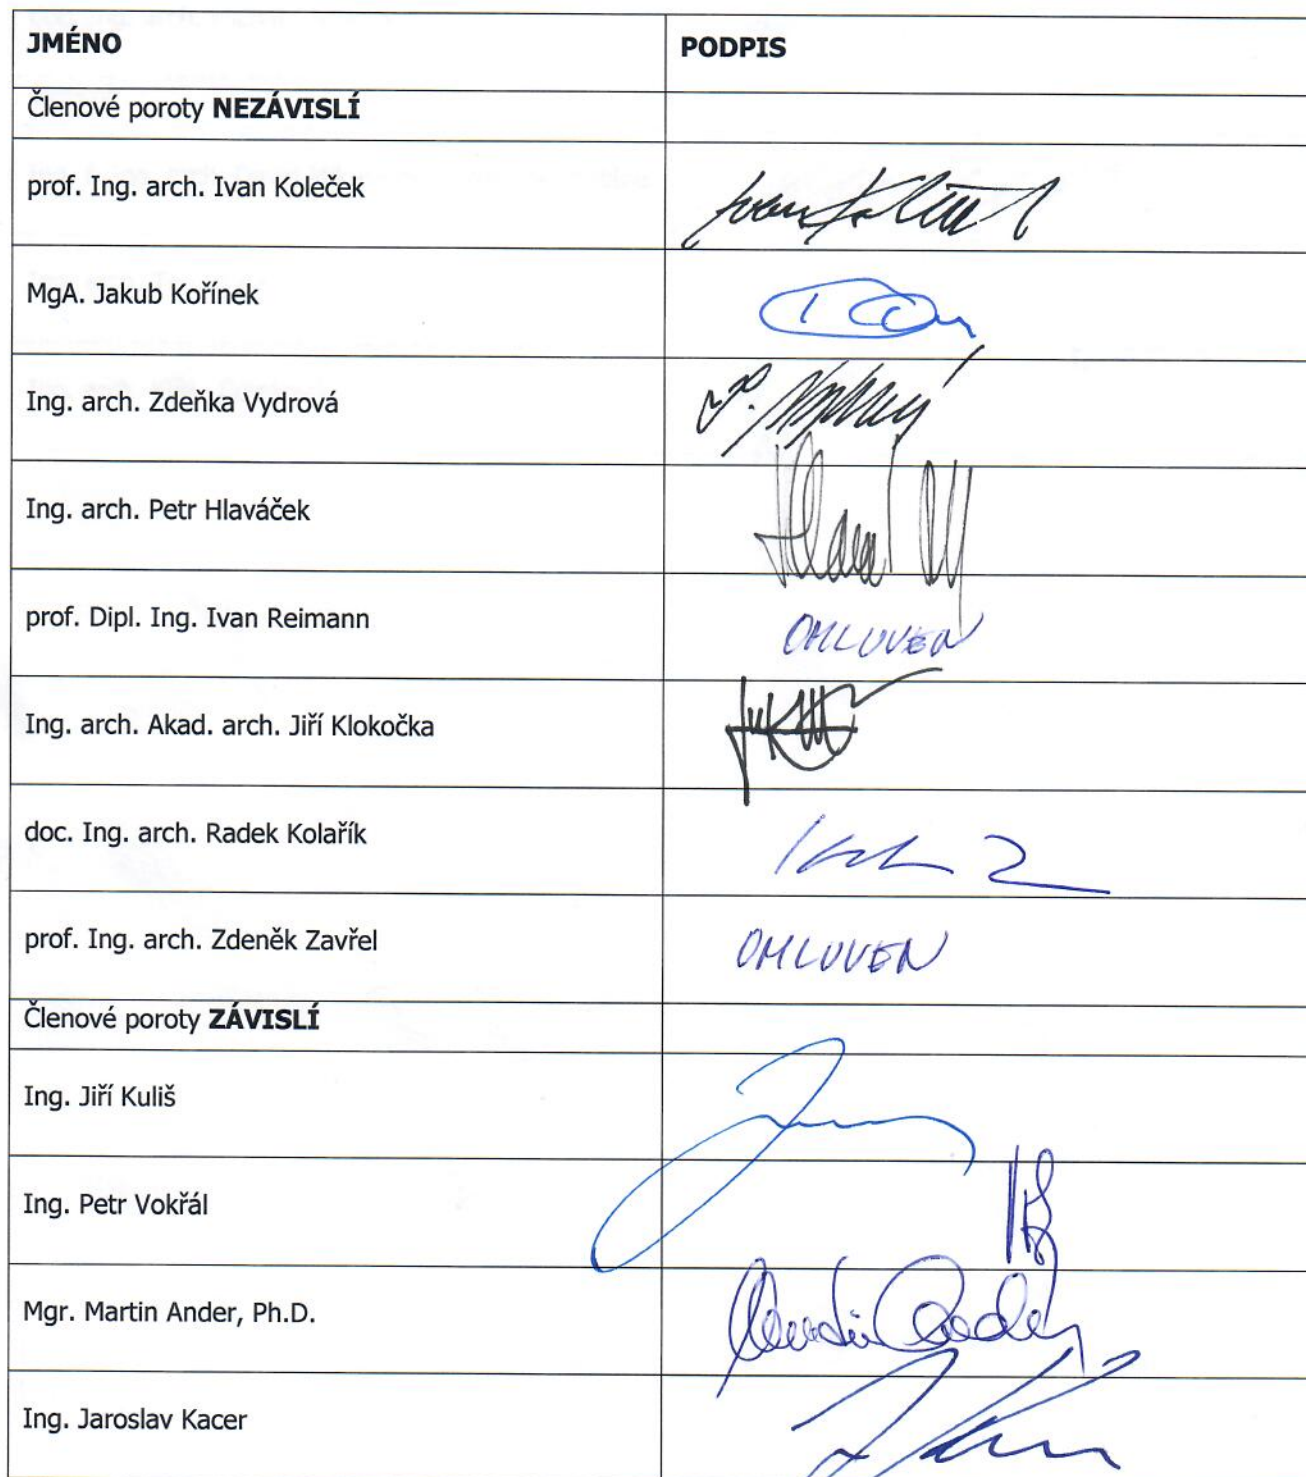 JMÉNO PODPIS
Členové poroty NEZÁVISLÍ
prof. Ing. arch. Ivan Koleček
MgA. Jakub Kořínek
Ing. arch. Zdeňka Vydrová
Ing. arch. Petr Hlaváček
prof. Dipl. Ing. Ivan Reimann OMLUVEN
Ing. arch. Akad. arch. Jiří Klokočka
doc. Ing. arch. Radek Kolařík
prof. Ing. arch. Zdeněk Zavřel OMLUVEN
Členové poroty ZÁVISLÍ
Ing. Jiří Kuliš
Ing. Petr Vokřál
Mgr. Martin Ander, Ph.D.
Ing. Jaroslav Kacer